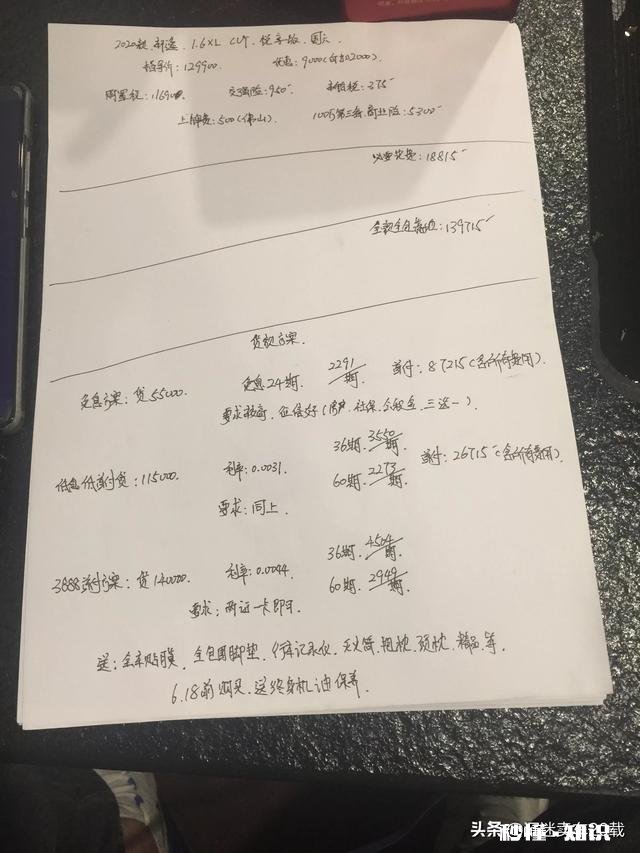 2020款.轩逸.1.6XL CVT.悦享版.国六
指导价:129900. 优惠:9000(含台2000)
购置税:11690 交强险:950 车船税:375
上牌费:500(佛山) 100万第三者.商业险:5300
必要花费:18815
全款全包落地:139715
贷款方案.
免息方案:贷55000 免息24期. 2291/期. 首付:87215(含所有费用).
要求较高,征信好(房产.社保.公积金.三选一).
低息低首付贷:115000. 利率:0.0031 36期.3550/期. 首付:26715(含所有费用).
60期.2273/期.
要求:同上.
3888首付方案:贷140000. 利率:0.0044 36期.4504/期.
60期.2949/期.
要求:两证一卡即可
送:全车贴膜.全包围脚垫.行车记录仪.灭火筒.抱枕.颈枕.精品.等.
6.18前购买.送终身机油保养.
头条 20载
秒懂·知识